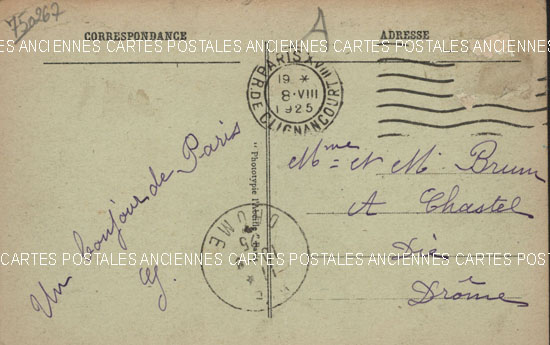 750267
A
CORRESPONDANCE
ADRESSE
CARTES POSTALES ANCIENNES CARTES POSTALES ANCIENNES CARTES POSTALES
PARIS XVIII
19 *
8·VIII
1925
R. DE CLIGNANCOURT
Un bonjour de Paris
"Phototypie
Mme et M. Brun
A Chastel
Die
Drôme
CARTES POSTALES ANCIENNES CARTES POSTALES ANCIENNES CARTES POSTALES